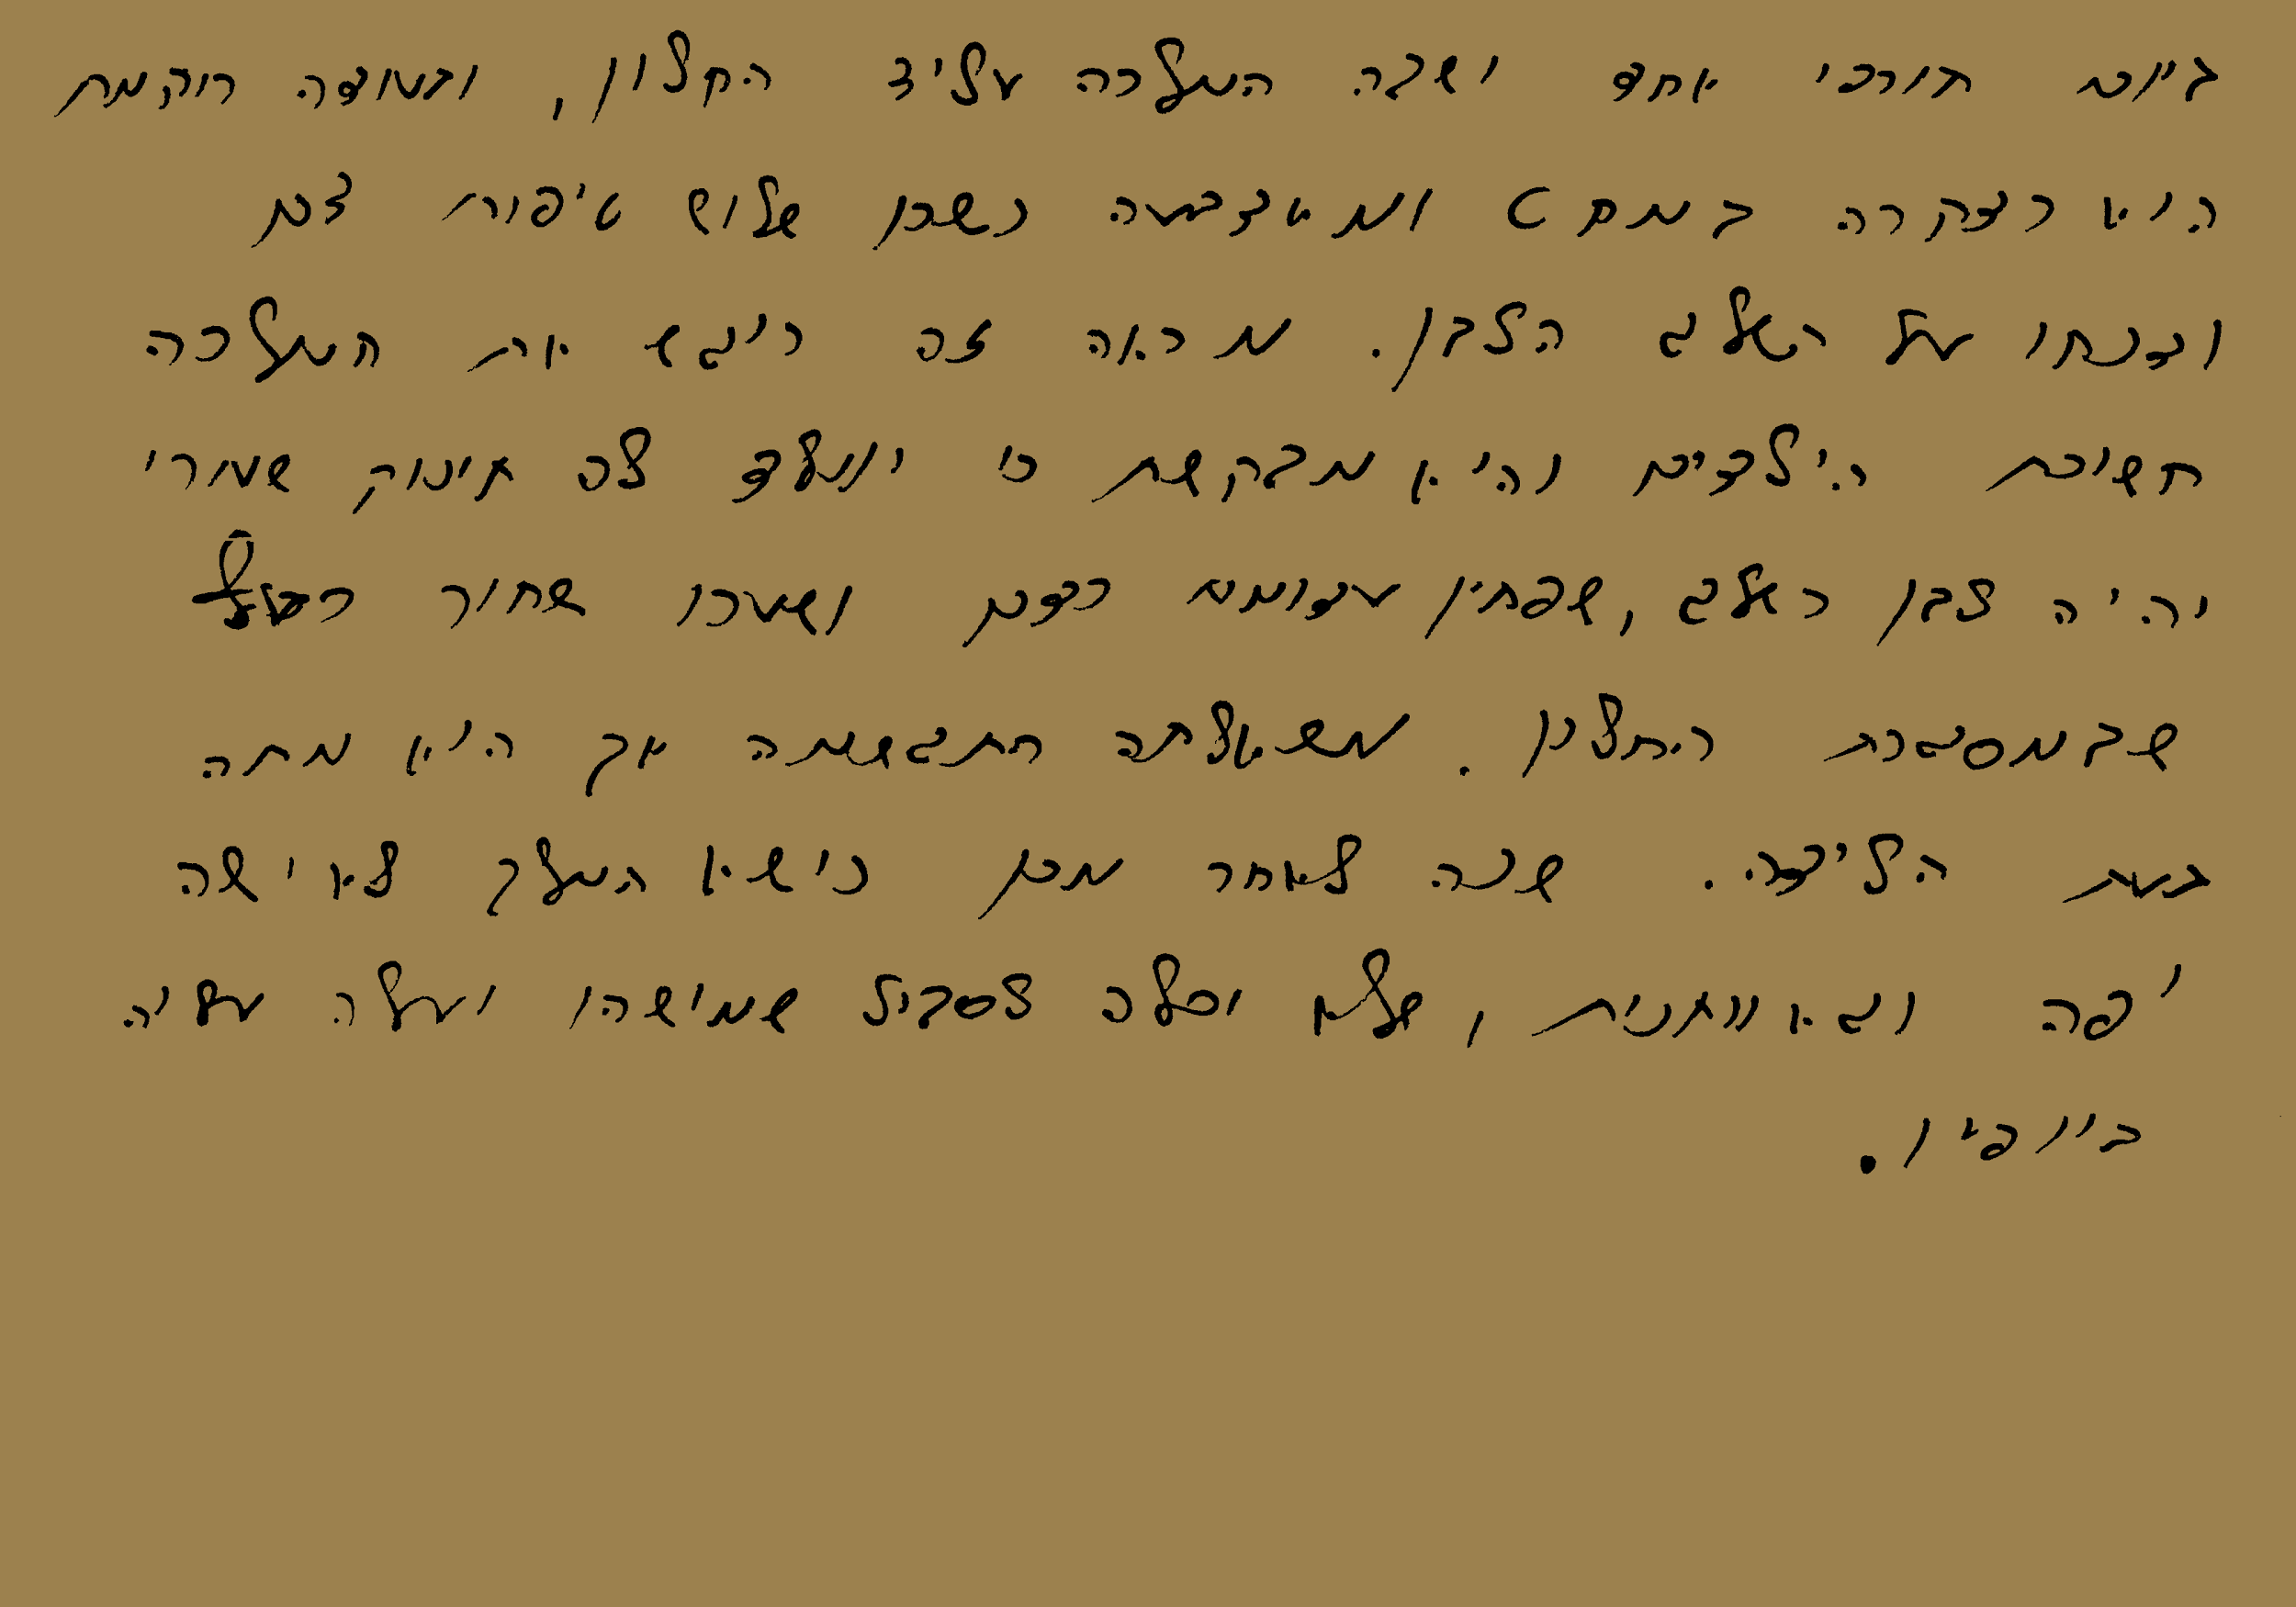 ביום חורפי אחד ישבה המלכה על יד החלון, ובעודה רוקמת
היא נדקרה במחט ומאצבעה נשרו שלוש טיפות דם
ונכתמו על השלג הלבן. מראה זה ריגש את המלכה
חשוכת הילדים והיא מבקשת כי ייוולד לה תינוק שעורו
יהיה לבן כשלג, שפתיו אדומות כדם ושערו שחור כמו
שבמסגרת החלון. משאלתה התגשמה אך היא מתה
בעת הלידה. שנה לאחר מכן נישא המלך לאישה
יפה וגאוותנית, שלא יכלה לסבול שמישהו יעלה עליה
ביופיו.